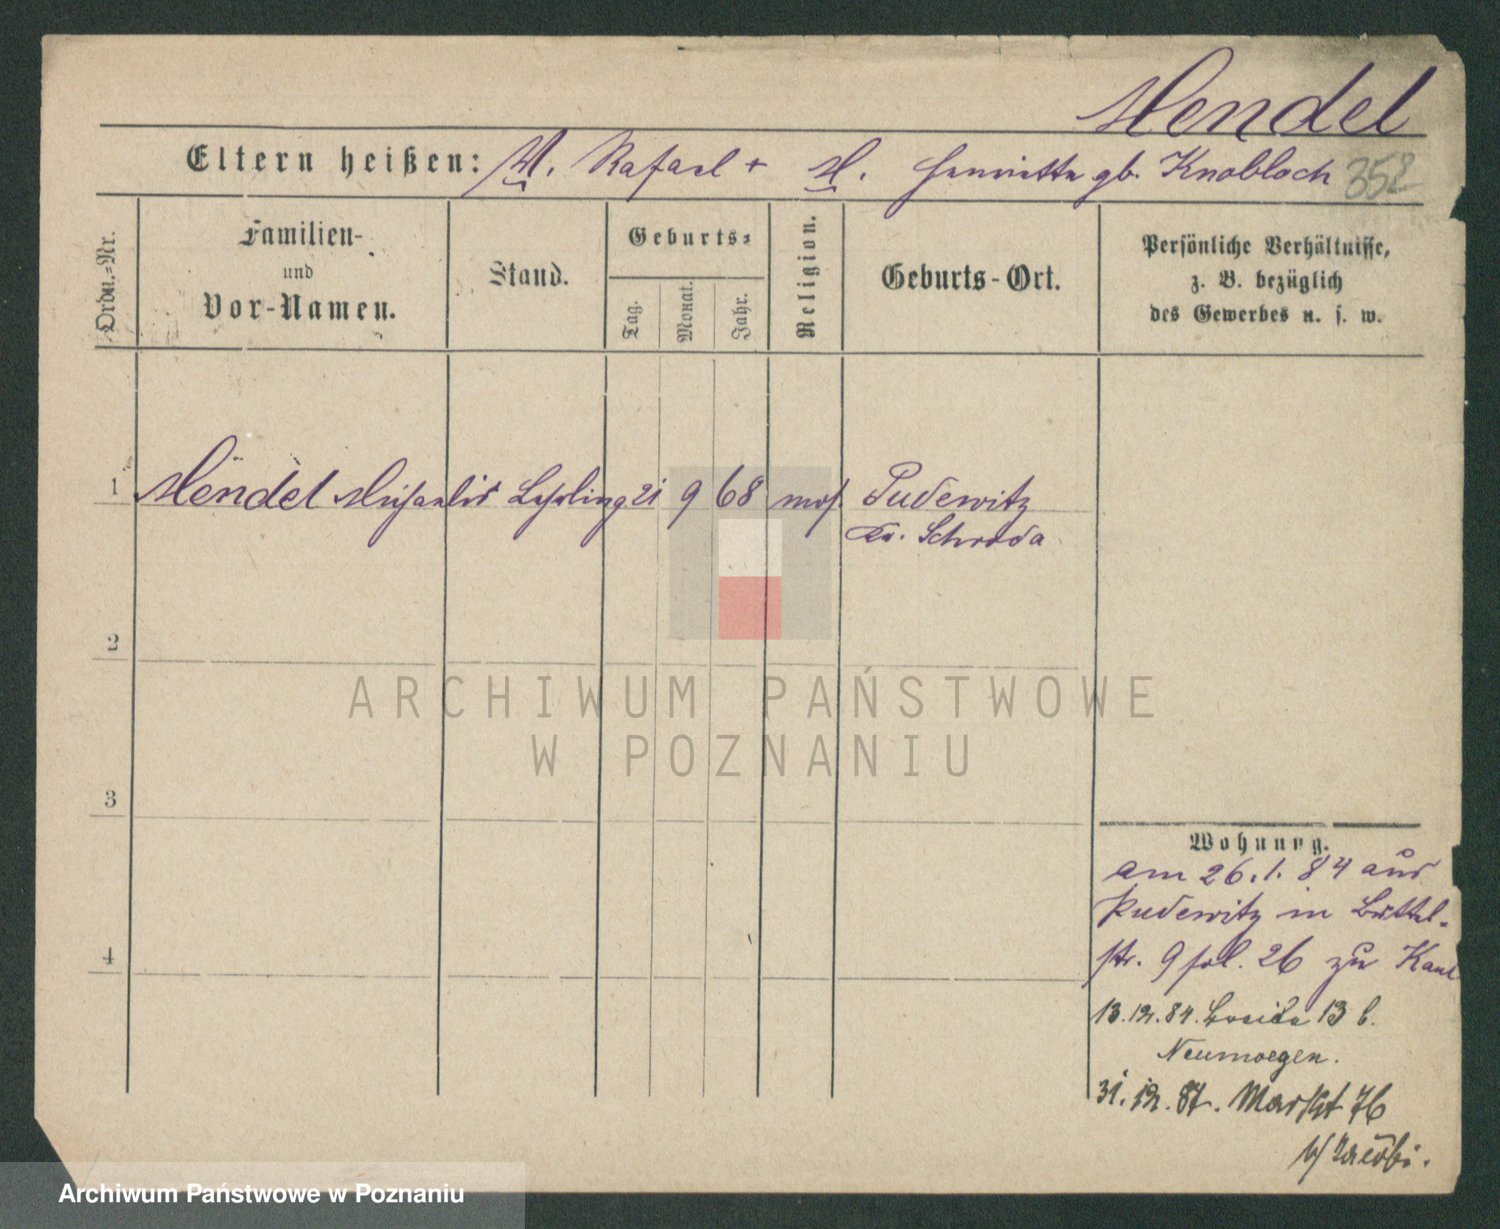 Mendel
Eltern heißen: M. Rafael + M. Henriette gb. Knobloch 352
Ordn.=Nr.
Familien-
und
Vor-Namen.
Stand.
Geburts=
Tag.
Monat.
Jahr.
Religion.
Geburts-Ort.
Persönliche Verhältnisse,
z. B. bezüglich
des Gewerbes u. s. w.
1 Mendel Michaelis Lehrling 21 9 68 mos. Pudewitz
Kr. Schroda
2
3
4
Wohnung.
am 26.1.84 aus
Pudewitz in Büttel-
str. 9 pol. 26 zu
13.12.84. Breite 13 b.
Neumoegen.
31.12.87. Markt 76
b/ Jacobi.
ARCHIWUM PAŃSTWOWE
W POZNANIU
Archiwum Państwowe w Poznaniu